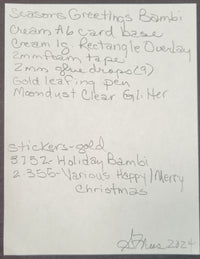 Seasons Greetings Bambi
Cream A6 card base
Cream lg. Rectangle Overlay
2mm foam tape
2mm glue drops (9)
Gold leafing pen
Moondust Clear Glitter
Stickers-gold
8752-Holiday Bambi
2355-Various Happy/Merry
Christmas
2024